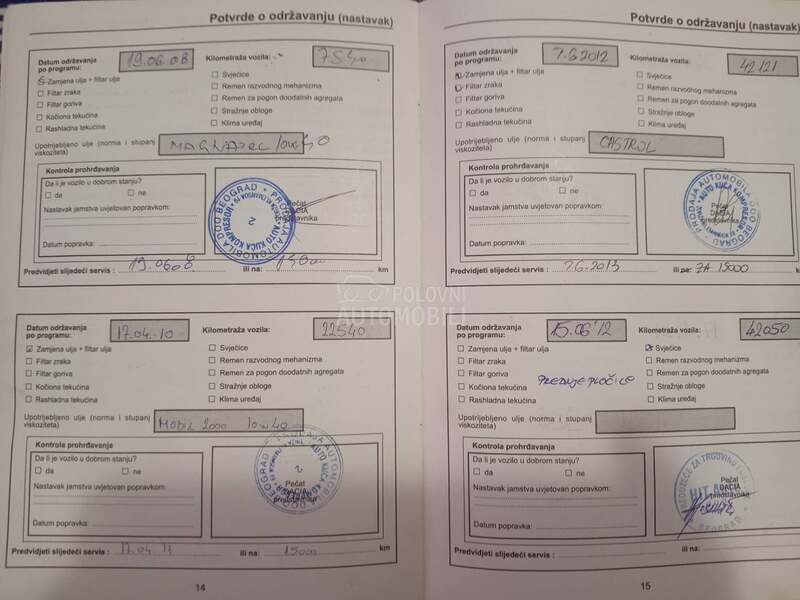 Potvrde o održavanju (nastavak)
Datum održavanja
po programu:
19.06.08
Kilometraža vozila:
7540
Zamjena ulja + filtar ulja
Filtar zraka
Filtar goriva
Kočiona tekućina
Rashladna tekućina
Svjećice
Remen razvodnog mehanizma
Remen za pogon doodatnih agregata
Stražnje obloge
Klima uređaj
Upotrijebljeno ulje (norma i stupanj
viskoziteta)
Kontrola prohrđavanja
Da li je vozilo u dobrom stanju?
da
ne
Nastavak jamstva uvjetovan popravkom:
Datum popravka:
Pečat
DACIA
predstavnika
Predvidjeti slijedeći servis :
ili na:
km
Datum održavanja
po programu:
17.04.10
Kilometraža vozila:
22540
Zamjena ulja + filtar ulja
Filtar zraka
Filtar goriva
Kočiona tekućina
Rashladna tekućina
Svjećice
Remen razvodnog mehanizma
Remen za pogon doodatnih agregata
Stražnje obloge
Klima uređaj
Upotrijebljeno ulje (norma i stupanj
viskoziteta)
MOBIL 2000 10w40
Kontrola prohrđavanja
Da li je vozilo u dobrom stanju?
da
ne
Nastavak jamstva uvjetovan popravkom:
Datum popravka:
Pečat
DACIA
predstavnika
Predvidjeti slijedeći servis :
17.04.11
ili na:
15000
km
14
Potvrde o održavanju (nastavak)
Datum održavanja
po programu:
7.6.2012
Kilometraža vozila:
42121
Zamjena ulja + filtar ulja
Filtar zraka
Filtar goriva
Kočiona tekućina
Rashladna tekućina
Svjećice
Remen razvodnog mehanizma
Remen za pogon doodatnih agregata
Stražnje obloge
Klima uređaj
Upotrijebljeno ulje (norma i stupanj
viskoziteta)
CASTROL
Kontrola prohrđavanja
Da li je vozilo u dobrom stanju?
da
ne
Nastavak jamstva uvjetovan popravkom:
Datum popravka:
Pečat
DACIA
predstavnika
Predvidjeti slijedeći servis :
7.6.2013
ili na:
ZA 15000
km
Datum održavanja
po programu:
15.06.'12
Kilometraža vozila:
42050
Zamjena ulja + filtar ulja
Filtar zraka
Filtar goriva
Kočiona tekućina
Rashladna tekućina
PREDNJE PLOČICE
Svjećice
Remen razvodnog mehanizma
Remen za pogon doodatnih agregata
Stražnje obloge
Klima uređaj
Upotrijebljeno ulje (norma i stupanj
viskoziteta)
Kontrola prohrđavanja
Da li je vozilo u dobrom stanju?
da
ne
Nastavak jamstva uvjetovan popravkom:
Datum popravka:
Pečat
DACIA
predstavnika
Predvidjeti slijedeći servis :
ili na:
km
15
POLOVNI
AUTOMOBILI